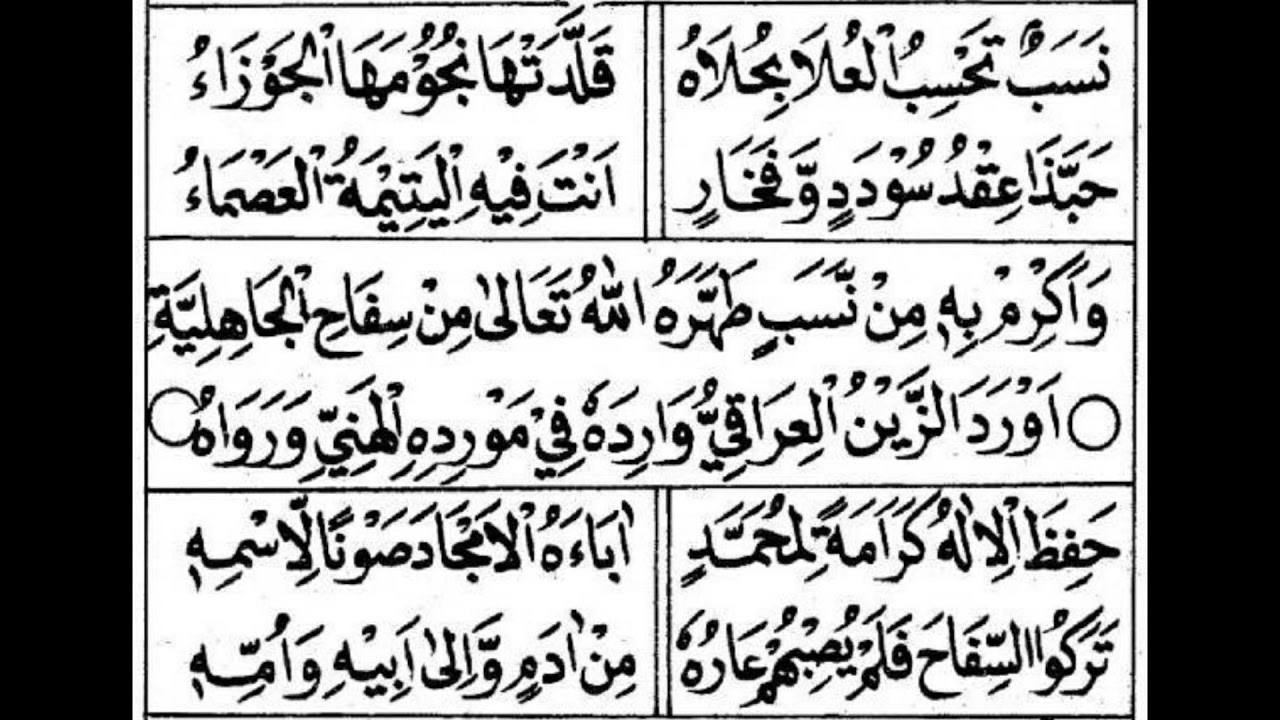 نَسَبٌ تَحْسِبُ الْعُلَا بِحُلَاهُ قَلَّدَتْهَا نُجُوْمَهَا الْجَوْزَاءُ
حَبَّذَا عِقْدُ سُوْدَدٍ وَّفَخَارٍ اَنْتَ فِيْهِ الْيَتِيْمَةُ الْعَصْمَاءُ
وَاَكْرِمْ بِهٖ مِنْ نَّسَبٍ طَهَّرَهُ اللّٰهُ تَعَالٰى مِنْ سِفَاحِ الْجَاهِلِيَّةِ
○ اَوْرَدَ الزَّيْنُ الْعِرَاقِيُّ وَارِدَهٗ فِيْ مَوْرِدِهِ الْهَنِيِّ وَرَوَاهُ ○
حَفِظَ الْاِلٰهُ كَرَامَةً لِمُحَمَّدٍ اٰبَاءَهُ الْاَمْجَادَ صَوْنًا لِّاسْمِهٖ
تَرَكُوا السِّفَاحَ فَلَمْ يُصِبْهُمْ عَارُهٗ مِنْ اٰدَمٍ وَّاِلٰى اَبِيْهِ وَاُمِّهٖ